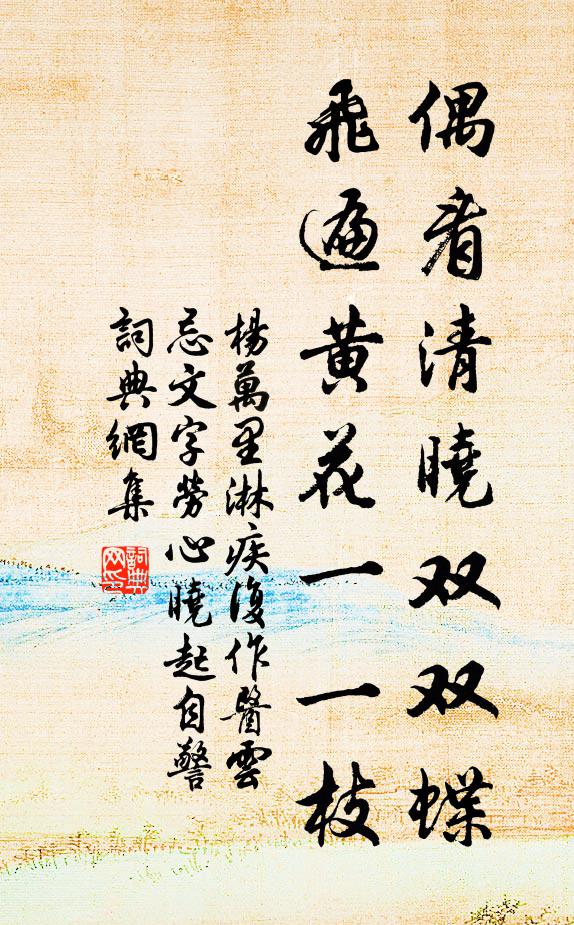 偶看清曉双双蝶
飛遍黄花一一枝
楊萬里淋疾復作醫雲
忌文字勞心曉起自警
詞典網集
詞典网